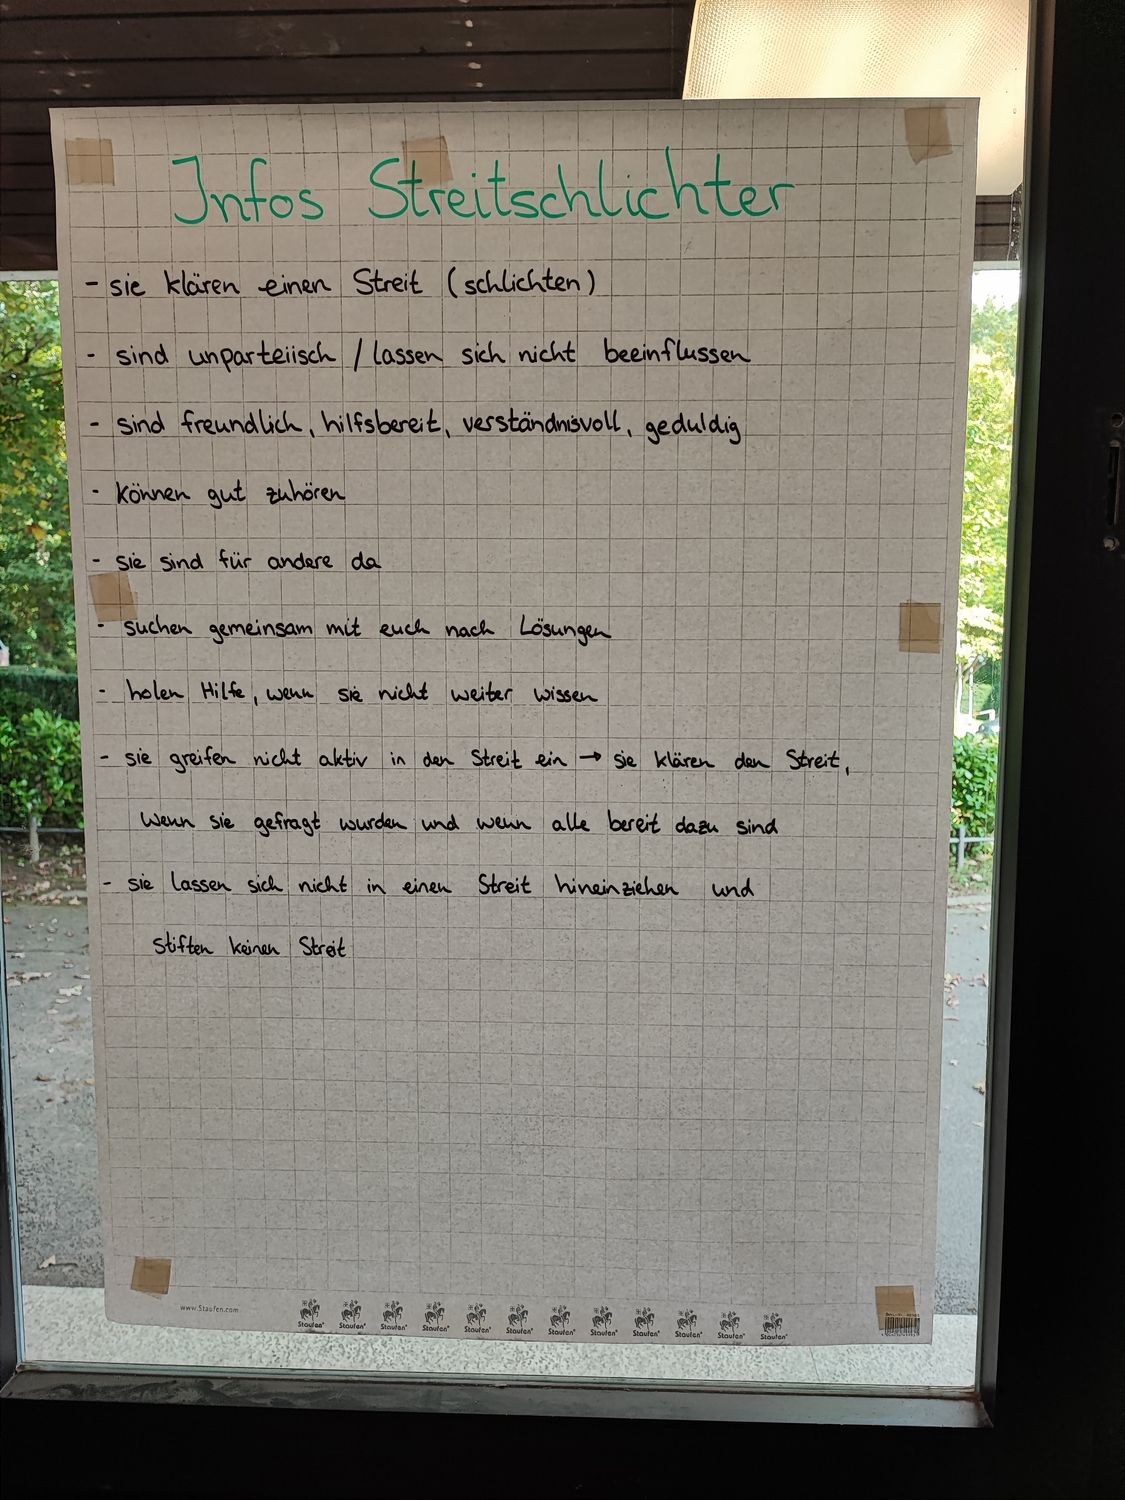 Infos Streitschlichter
- sie klären einen Streit (schlichten)
- sind unparteiisch / lassen sich nicht beeinflussen
- sind freundlich, hilfsbereit, verständnisvoll, geduldig
- können gut zuhören
- sie sind für andere da
- suchen gemeinsam mit euch nach Lösungen
- holen Hilfe, wenn sie nicht weiter wissen
- sie greifen nicht aktiv in den Streit ein → sie klären den Streit,
wenn sie gefragt wurden und wenn alle bereit dazu sind
- sie lassen sich nicht in einen Streit hineinziehen und
stiften keinen Streit
www.Staufen.com
Staufen® Staufen® Staufen® Staufen® Staufen® Staufen® Staufen® Staufen® Staufen® Staufen® Staufen® Staufen®